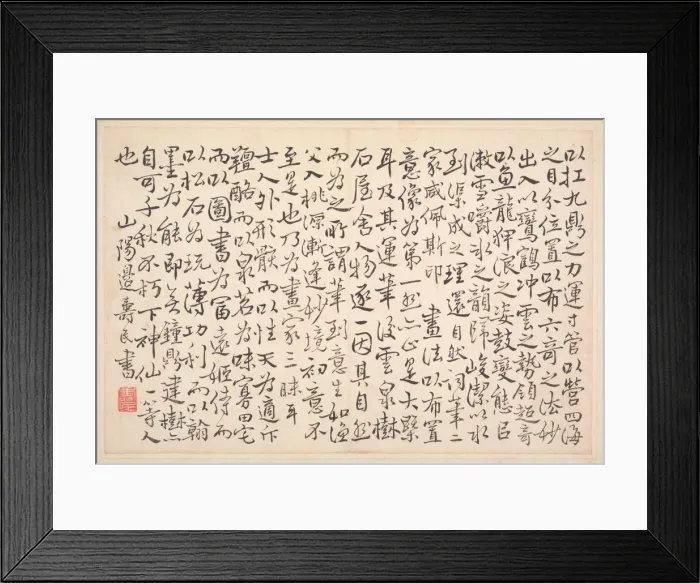 以扛九鼎之力運寸管以營四海
之目分位置以布六奇之法妙
出入以鸞鶴冲雲之勢領超奇
以魚龍狎浪之姿鼓變態臣
漱雪嚼冰之韻歸峻潔以水
到渠成之理還自然詞筆二
家咸佩斯印 畫法以布置
意像為第一然亦止是大槩
耳及其運筆後雲泉樹
石屋舍人物逐一因其自然
而為之所謂筆到意生如漁
父入桃源漸逢妙境初意不
至是也乃為畫家三昧耳
士人外形骸而以性天為適斥
羶酪而以泉茗為味寡田宅
而以圖書為富遠姬侍而
以松石為玩薄功利而以翰
墨為能即無鐘鼎建樹亦
自可千秋不朽下神仙一等人
也 山陽邊壽民書